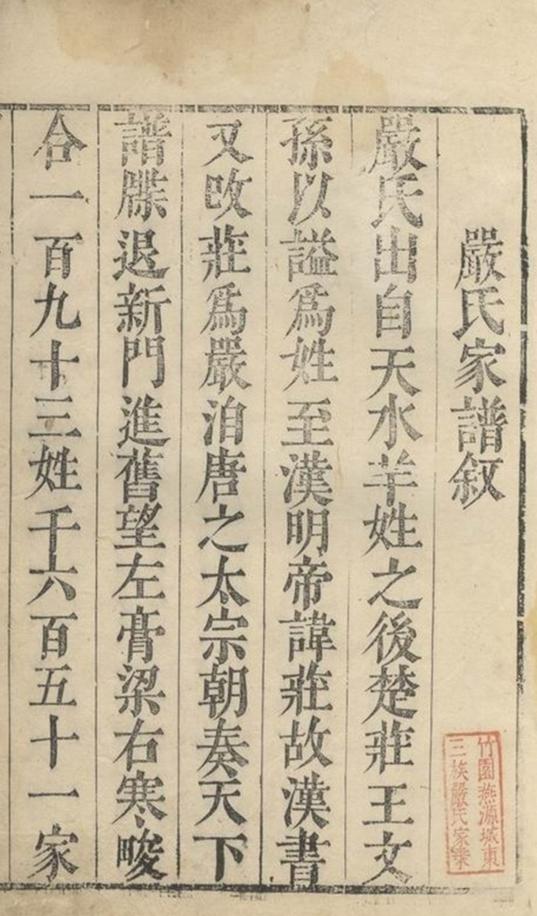 嚴氏家譜叙
嚴氏出自天水羊姓之後楚莊王文
孫以謚爲姓至漢明帝諱莊故漢書
又改莊爲嚴洎唐之太宗朝奏天下
譜牒退新門進舊望左膏梁右寒畯
合一百九十三姓千六百五十一家
竹園燕源城東
三族嚴氏家乗